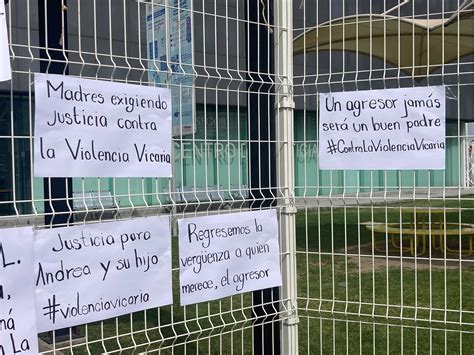 Madres exigiendo
Justicia contra
la Violencia Vicaria
Un agresor jamás
será un buen padre
#ContraLaViolenciaVicaria
CENTRO
Justicia para
Andrea y su hijo
#violenciavicaria
Regresemos la
vergüenza a quien
merece, el agresor